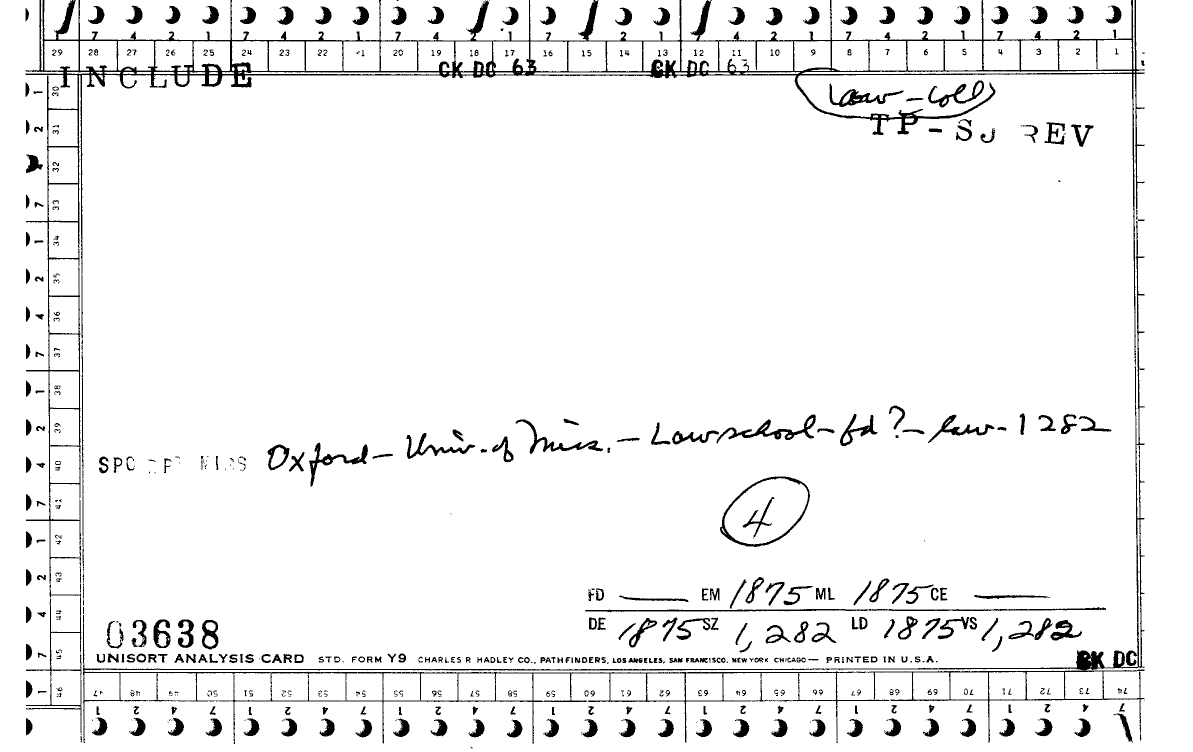 7 4 2 1 7 4 2 1 7 4 2 1 7 4 2 1 7 4 2 1 7 4 2 1
29 28 27 26 25 24 23 22 21 20 19 18 17 16 15 14 13 12 11 10 9 8 7 6 5 4 3 2 1
CK DC 63 CK DC 63
INCLUDE
law-coll
TP-SJ REV
1 30
2 31
32
7 33
1 34
2 35
4 36
7 37
1 38
2 39
4 40
7 41
1 42
2 43
4 44
7 45
1 46
Oxford-Univ. of Miss.-Law school-fd?-law-1282
SPC DPT MISS
4
FD — EM 1875 ML 1875 CE —
DE 1875 SZ 1,282 LD 1875 VS 1,282
03638
UNISORT ANALYSIS CARD STD. FORM Y9 CHARLES R HADLEY CO., PATHFINDERS, LOS ANGELES, SAN FRANCISCO, NEW YORK CHICAGO — PRINTED IN U.S.A.
CK DC
47 48 49 50 51 52 53 54 55 56 57 58 59 60 61 62 63 64 65 66 67 68 69 70 71 72 73 74
1 2 4 7 1 2 4 7 1 2 4 7 1 2 4 7 1 2 4 7 1 2 4 7 1 2 4 7